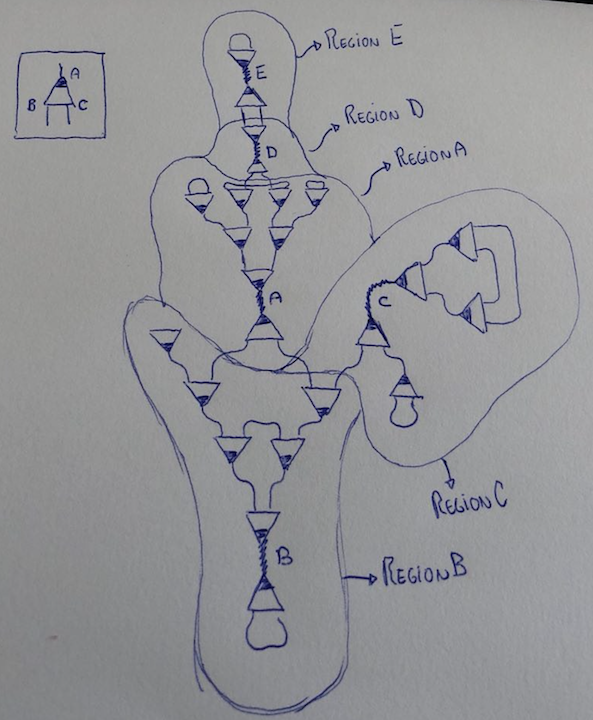 REGION E
A
B C
E
REGION D
D
REGION A
A
C
REGION C
B
REGION B